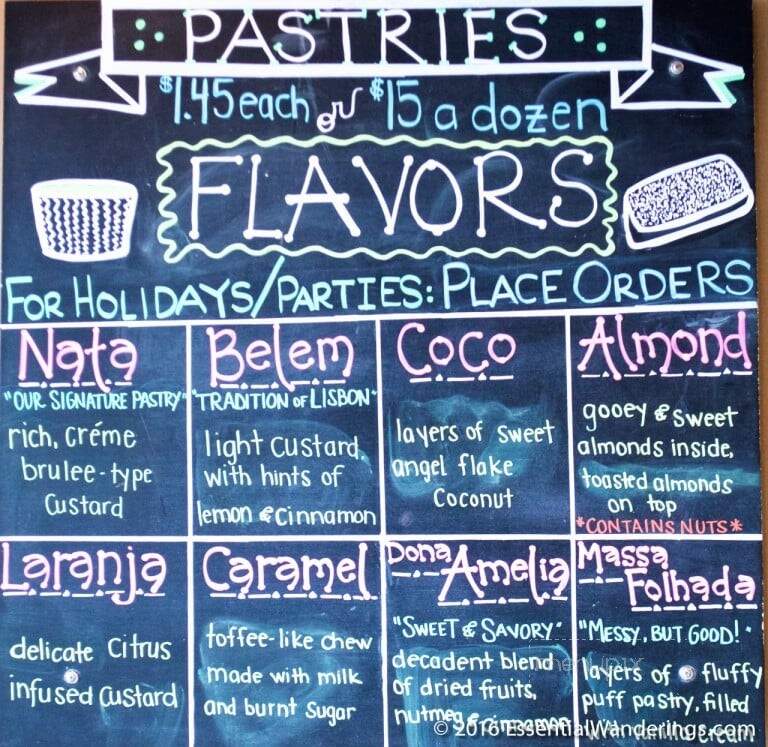 PASTRIES
$1.45 each or $15 a dozen
FLAVORS
FOR HOLIDAYS/PARTIES: PLACE ORDERS
Nata
"OUR SIGNATURE PASTRY"
rich, créme
brulee-type
custard
Belem
"TRADITION OF LISBON"
light custard,
with hints of
lemon & cinnamon
Coco
layers of sweet
angel flake
coconut
Almond
gooey & sweet
almonds inside,
toasted almonds
on top
*CONTAINS NUTS*
Laranja
delicate citrus
infused custard
Caramel
toffee-like chew
made with milk
and burnt sugar
Dona
Amelia
"SWEET & SAVORY"
decadent blend
of dried fruits,
nutmeg & cinnamon
Massa
Folhada
"MESSY, BUT GOOD!"
layers of fluffy
puff pastry, filled
with cream
© 2016 EssentialWanderings.com